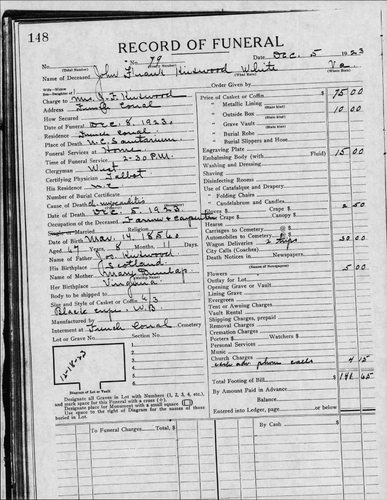 148
RECORD OF FUNERAL
No. 79 Date Dec. 5 1923
Name of Deceased John Frank Kirkwood White Va.
Charge to Mrs. J. F. Kirkwood
Address
How Secured
Date of Funeral Dec. 8 1923
Residence
Place of Death N.C. Sanitarium
Funeral Services at Home
Time of Funeral Service 2-30 P.M.
Clergyman West
Certifying Physician Talbot
His Residence N.C.
Number of Burial Certificate
Cause of Death Ch. myocarditis
Date of Death Dec. 5 1923
Occupation of the Deceased Farmer & Carpenter
Single or Married Religion
Date of Birth Mar. 4 1856
Aged 67 Years 8 Months 11 Days
Name of Father Jos Kirkwood
His Birthplace Scotland
Name of Mother Mary Dunlap
Her Birthplace Virginia
Body to be shipped to
Size and Style of Casket or Coffin 6/3
Black W.B
Manufactured by
Interment at Cemetery
Lot or Grave No. Section No.
12-18-23
Diagram of Lot or Vault
Designate all Graves in Lot with Numbers (1, 2, 3, 4, etc.),
and mark space for this Funeral with a cross (+).
Designate place for Monument with a small square
Use space to right of Diagram for the names of those
buried in Lot.
Price of Casket or Coffin $ 75 00
" Metallic Lining
" Outside Box 10 00
" Grave Vault
" Burial Robe
" Burial Slippers and Hose
Engraving Plate
Embalming Body (with Fluid) 15 00
Washing and Dressing
Shaving
Disinfecting Rooms
Use of Catafalque and Drapery
" Folding Chairs
" Candelabrum and Candles
Gloves $ Crape $ 2 50
Crape $ Canopy $
Hearse
Carriages to Cemetery
Automobiles to Cemetery
Wagon Deliveries 2 trips 30 00
City Calls (Coaches)
Death Notices in Newspapers
Flowers 5 00
Outlay for Lot
Opening Grave
Lining Grave
Evergreen
Tent or Awning Charges
Vault Rental
Shipping Charges, prepaid
Removal Charges
Cremation Charges
Porters $ Watchers $
Personal Services
Music
Church Charges
phone calls 4 15
Total Footing of Bill $ 141 65
By Amount Paid in Advance
Balance
Entered into Ledger, page or below $
To Funeral Charges, Total $ By Cash $